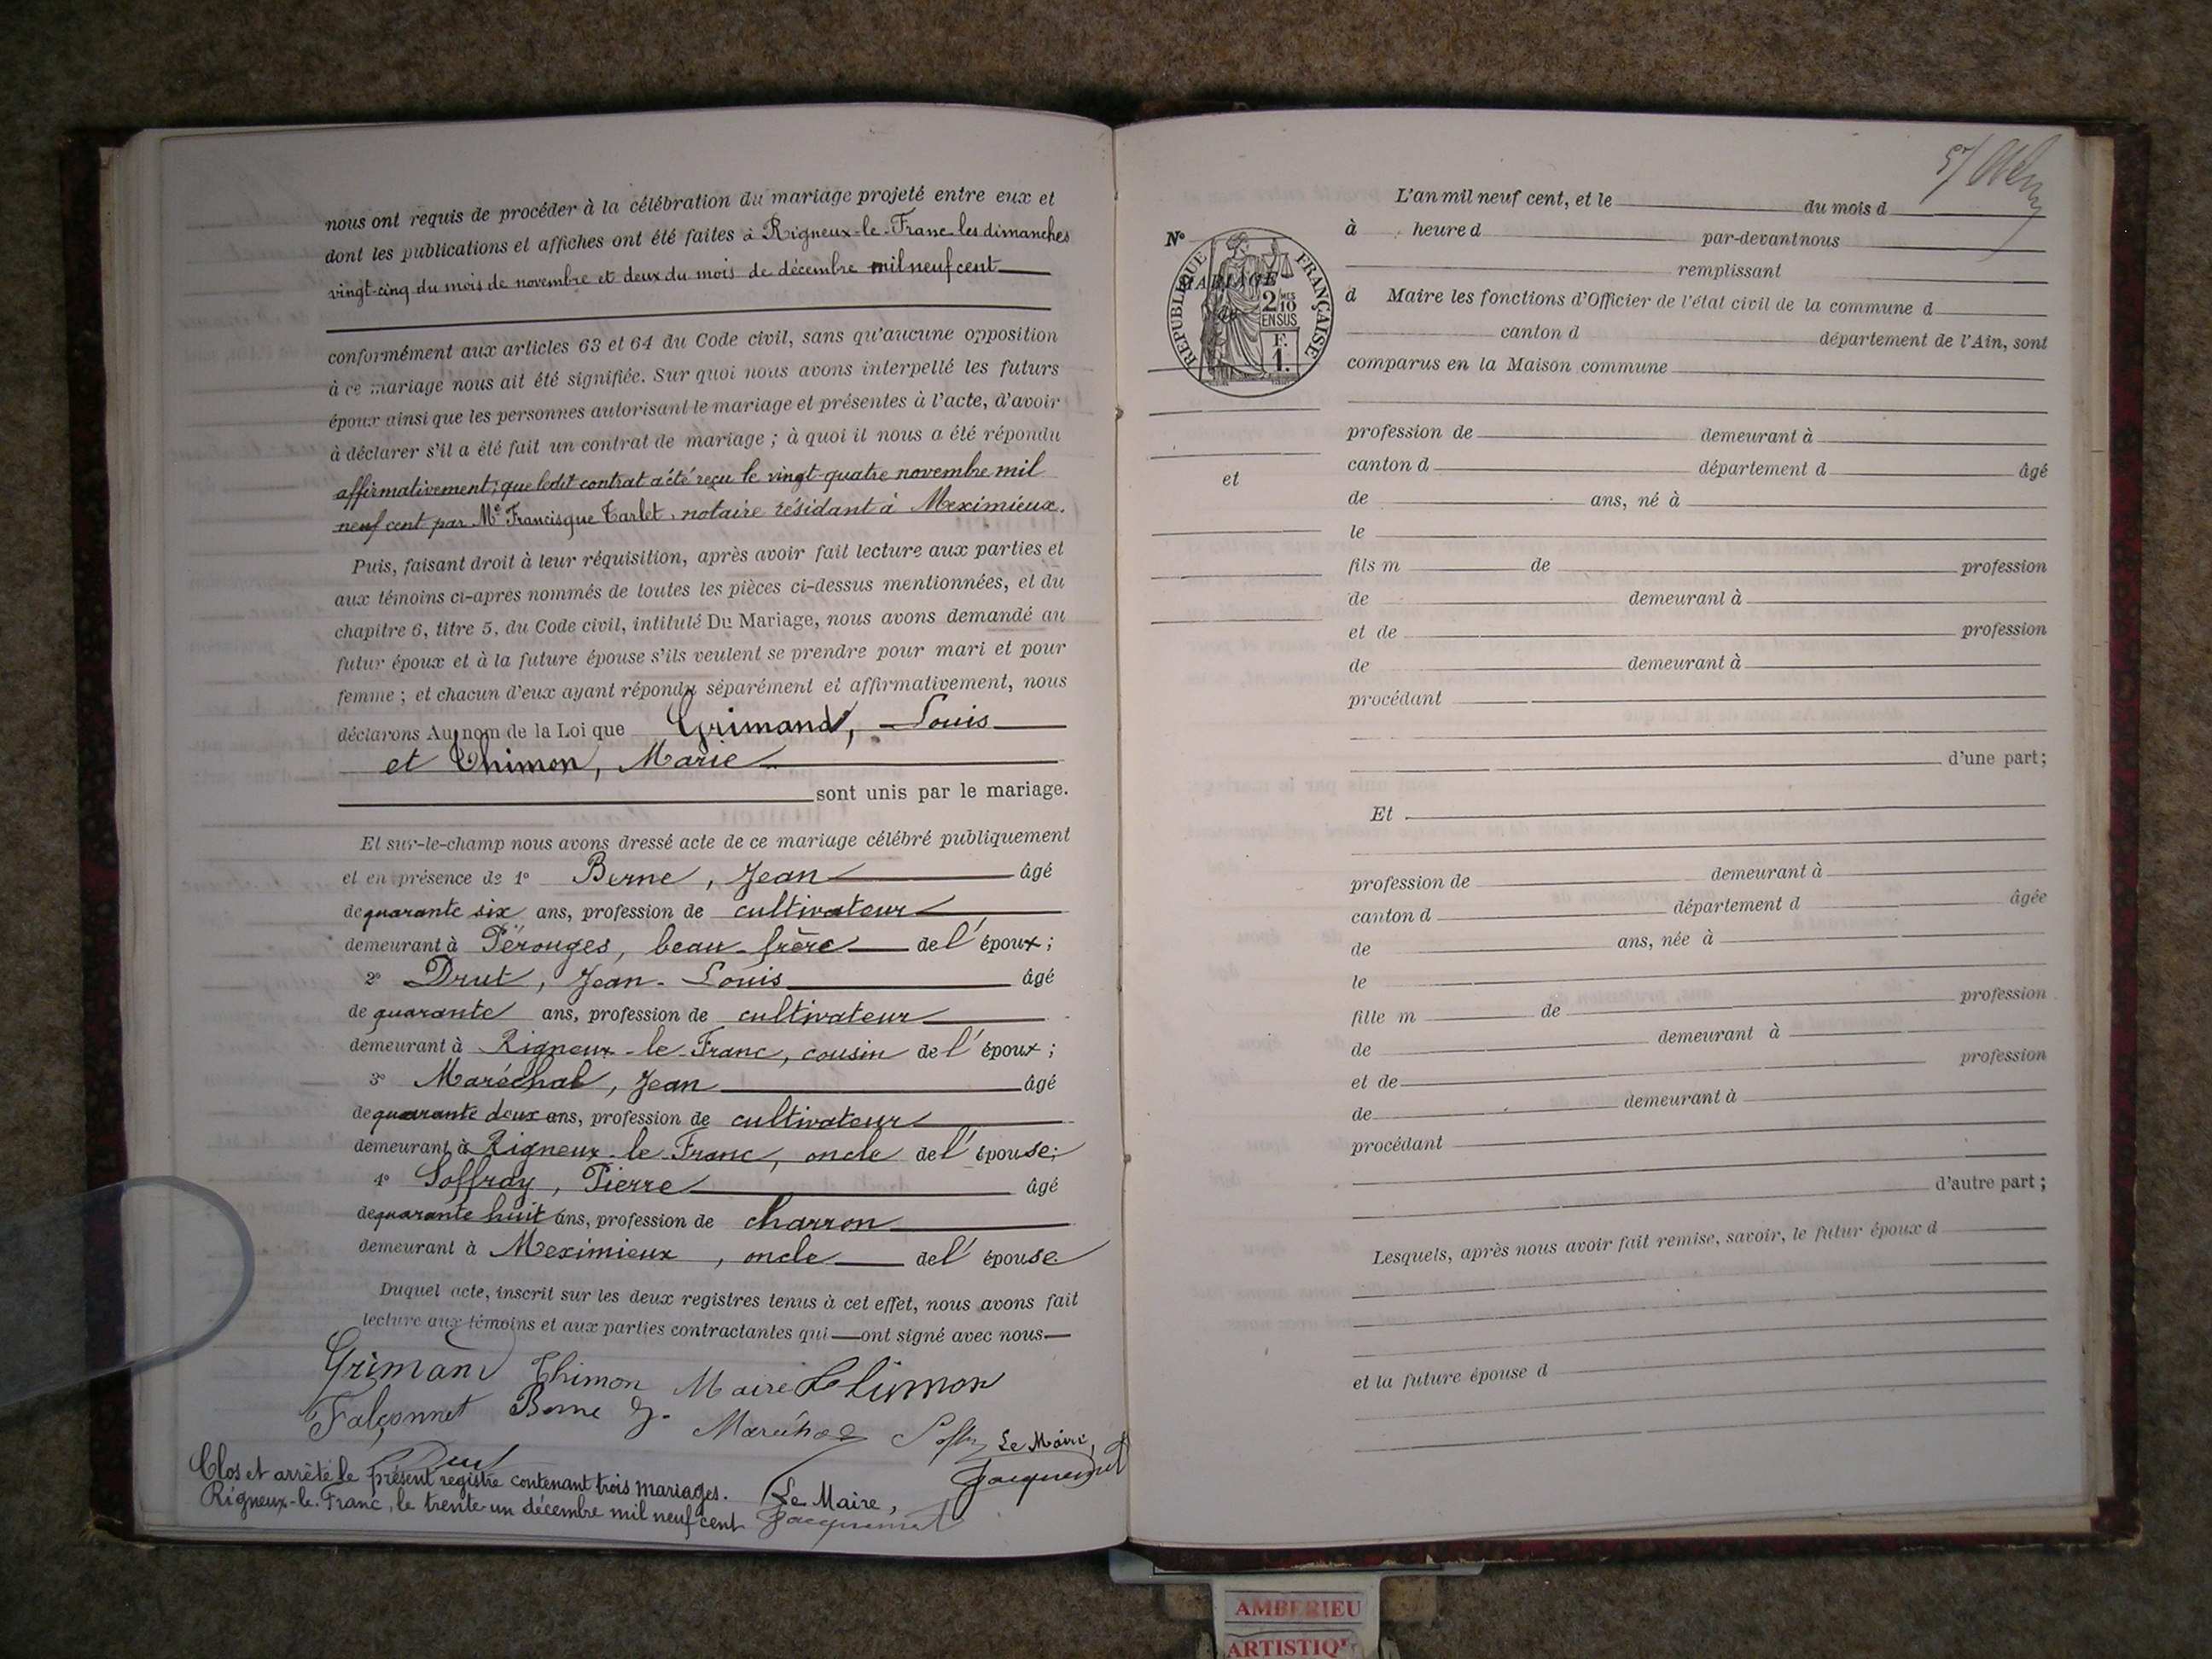 nous ont requis de procéder à la célébration du mariage projeté entre eux et
dont les publications et affiches ont été faites à Rigneux-le-Franc les dimanches
vingt-cinq du mois de novembre et deux du mois de décembre mil neuf cent
conformément aux articles 63 et 64 du Code civil, sans qu'aucune opposition
à ce mariage nous ait été signifiée. Sur quoi nous avons interpellé les futurs
époux ainsi que les personnes autorisant le mariage et présentes à l'acte, d'avoir
à déclarer s'il a été fait un contrat de mariage ; à quoi il nous a été répondu
affirmativement; que ledit contrat a été reçu le vingt-quatre novembre mil
neuf cent par Me Francisque Tarlet, notaire résidant à Meximieux.
Puis, faisant droit à leur réquisition, après avoir fait lecture aux parties et
aux témoins ci-après nommés de toutes les pièces ci-dessus mentionnées, et du
chapitre 6, titre 5, du Code civil, intitulé Du Mariage, nous avons demandé au
futur époux et à la future épouse s'ils veulent se prendre pour mari et pour
femme ; et chacun d'eux ayant répondu séparément et affirmativement, nous
déclarons Au nom de la Loi que Grimand, Louis
et Thimon, Marie
sont unis par le mariage.
Et sur-le-champ nous avons dressé acte de ce mariage célébré publiquement
et en présence de 1° Berne, Jean âgé
de quarante six ans, profession de cultivateur
demeurant à Pérouges, beau-frère de l'époux ;
2° Drut, Jean-Louis âgé
de quarante ans, profession de cultivateur
demeurant à Rigneux-le-Franc, cousin de l'époux ;
3° Maréchal, Jean âgé
de quarante deux ans, profession de cultivateur
demeurant à Rigneux-le-Franc, oncle de l'épouse;
4° Soffray, Pierre âgé
de quarante huit ans, profession de charron
demeurant à Meximieux, oncle de l'épouse.
Duquel acte, inscrit sur les deux registres tenus à cet effet, nous avons fait
lecture aux témoins et aux parties contractantes qui ont signé avec nous
Grimand Thimon Marie Thimon
Falconnet Berne J. Maréchal Le Maire,
Drut Jacquemet
Clos et arrêté le présent registre contenant trois mariages. Le Maire,
Rigneux-le-Franc, le trente-un décembre mil neuf cent Jacquemet
L'an mil neuf cent, et le du mois d
N° à heure d par-devant nous
MARIAGE remplissant
RÉPUBLIQUE FRANÇAISE
2 MES 10 EN SUS
F. 1.
d Maire les fonctions d'Officier de l'état civil de la commune d
canton d département de l'Ain, sont
comparus en la Maison commune
profession de demeurant à
canton d département d âgé
et
de ans, né à
le
fils m de profession
de demeurant à
et de profession
de demeurant à
procédant
d'une part ;
Et
profession de demeurant à
canton d département d âgée
de ans, née à
le
fille m de profession
de demeurant à
et de profession
de demeurant à
procédant
d'autre part ;
Lesquels, après nous avoir fait remise, savoir, le futur époux d
et la future épouse d
AMBERIEU
ARTISTIQ